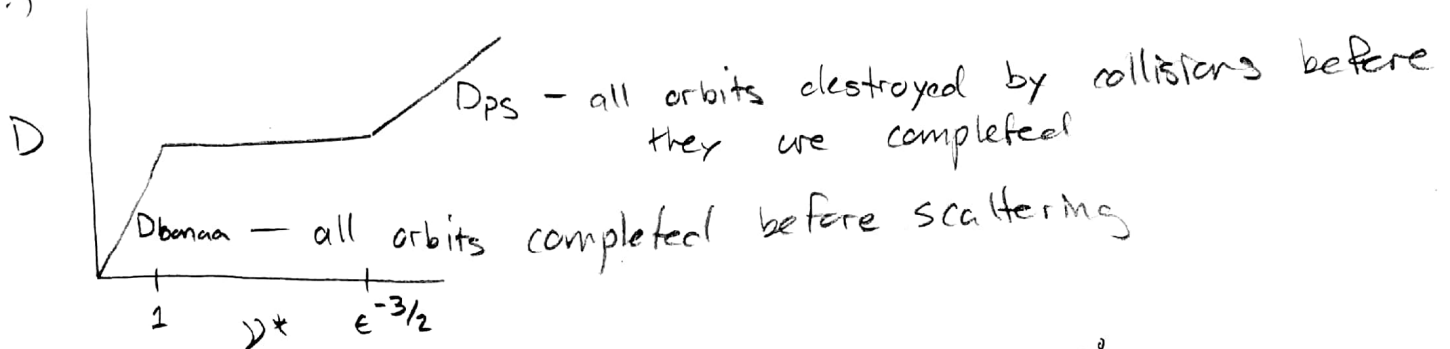 D
D_PS – all orbits destroyed by collisions before
they are completed
Dbanaa — all orbits completed before scattering
1 ν* ε^-3/2